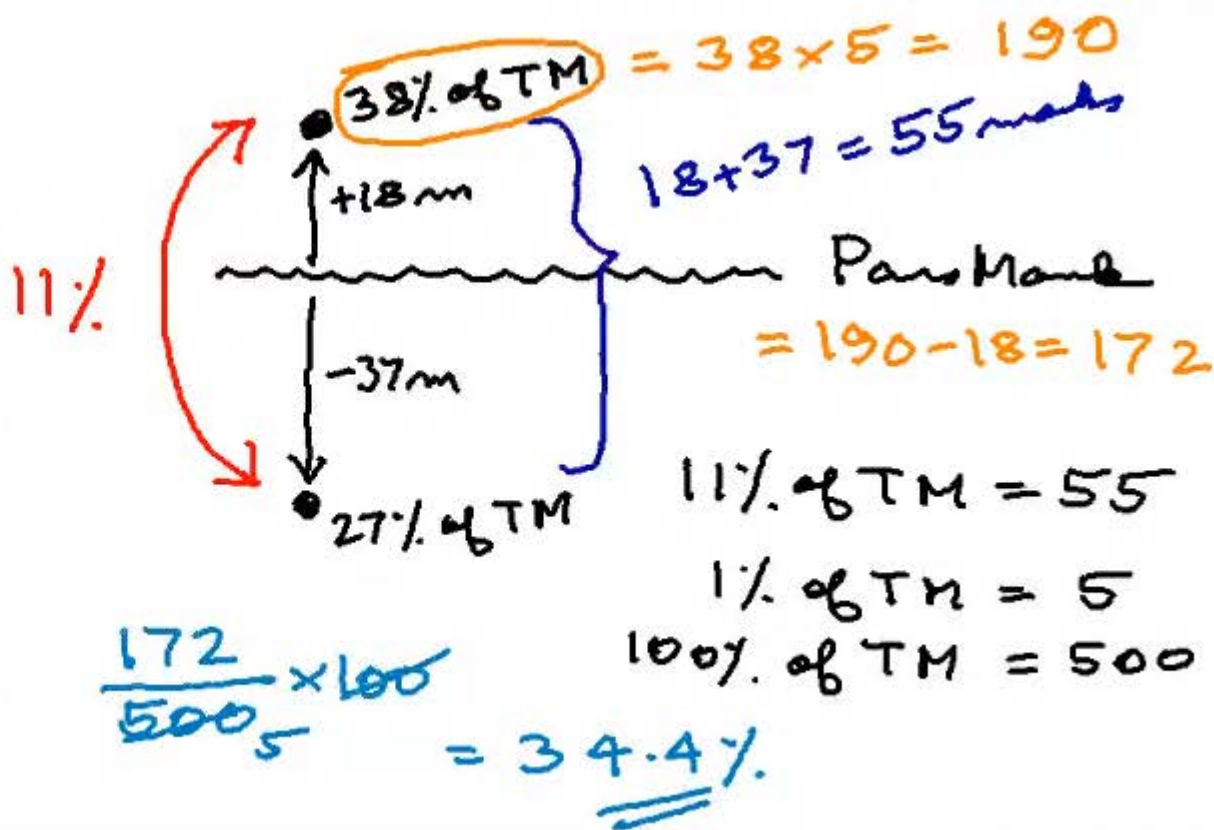 38% of TM = 38 × 5 = 190
+18m
18+37 = 55 marks
11%
Pass Mark
= 190-18 = 172
-37m
27% of TM
11% of TM = 55
1% of TM = 5
100% of TM = 500
172
500 × 100
5
= 34.4%